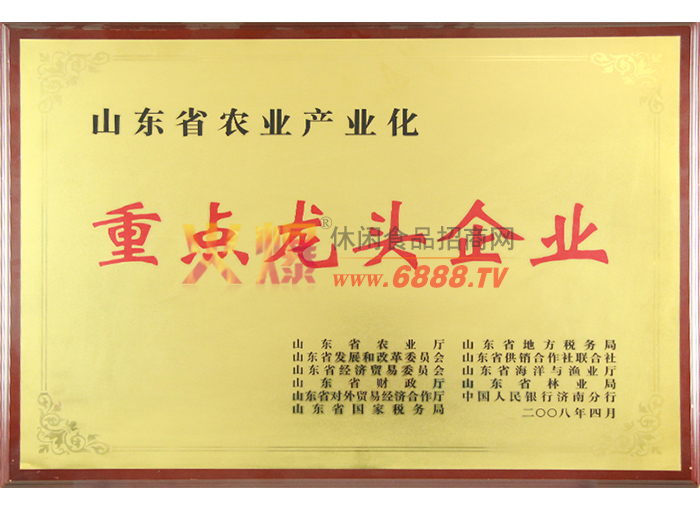 山东省农业产业化
重点龙头企业
火爆®休闲食品招商网
www.6888.TV
山东省农业厅
山东省发展和改革委员会
山东省经济贸易委员会
山东省财政厅
山东省对外贸易经济合作厅
山东省国家税务局
山东省地方税务局
山东省供销合作社联合社
山东省海洋与渔业厅
山东省林业局
中国人民银行济南分行
二〇〇八年四月